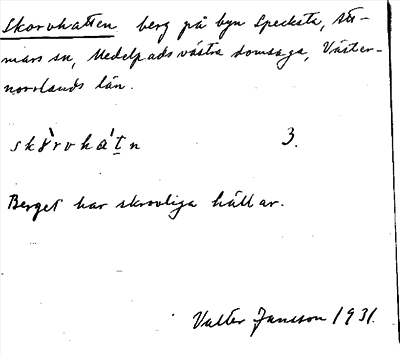 Skorvhatten berg på byn Specksta, Att-
mars sn, Medelpads västra domsaga, Väster-
norrlands län.
3.
Berget har skrovliga hällar.
Valter Jansson 1931.